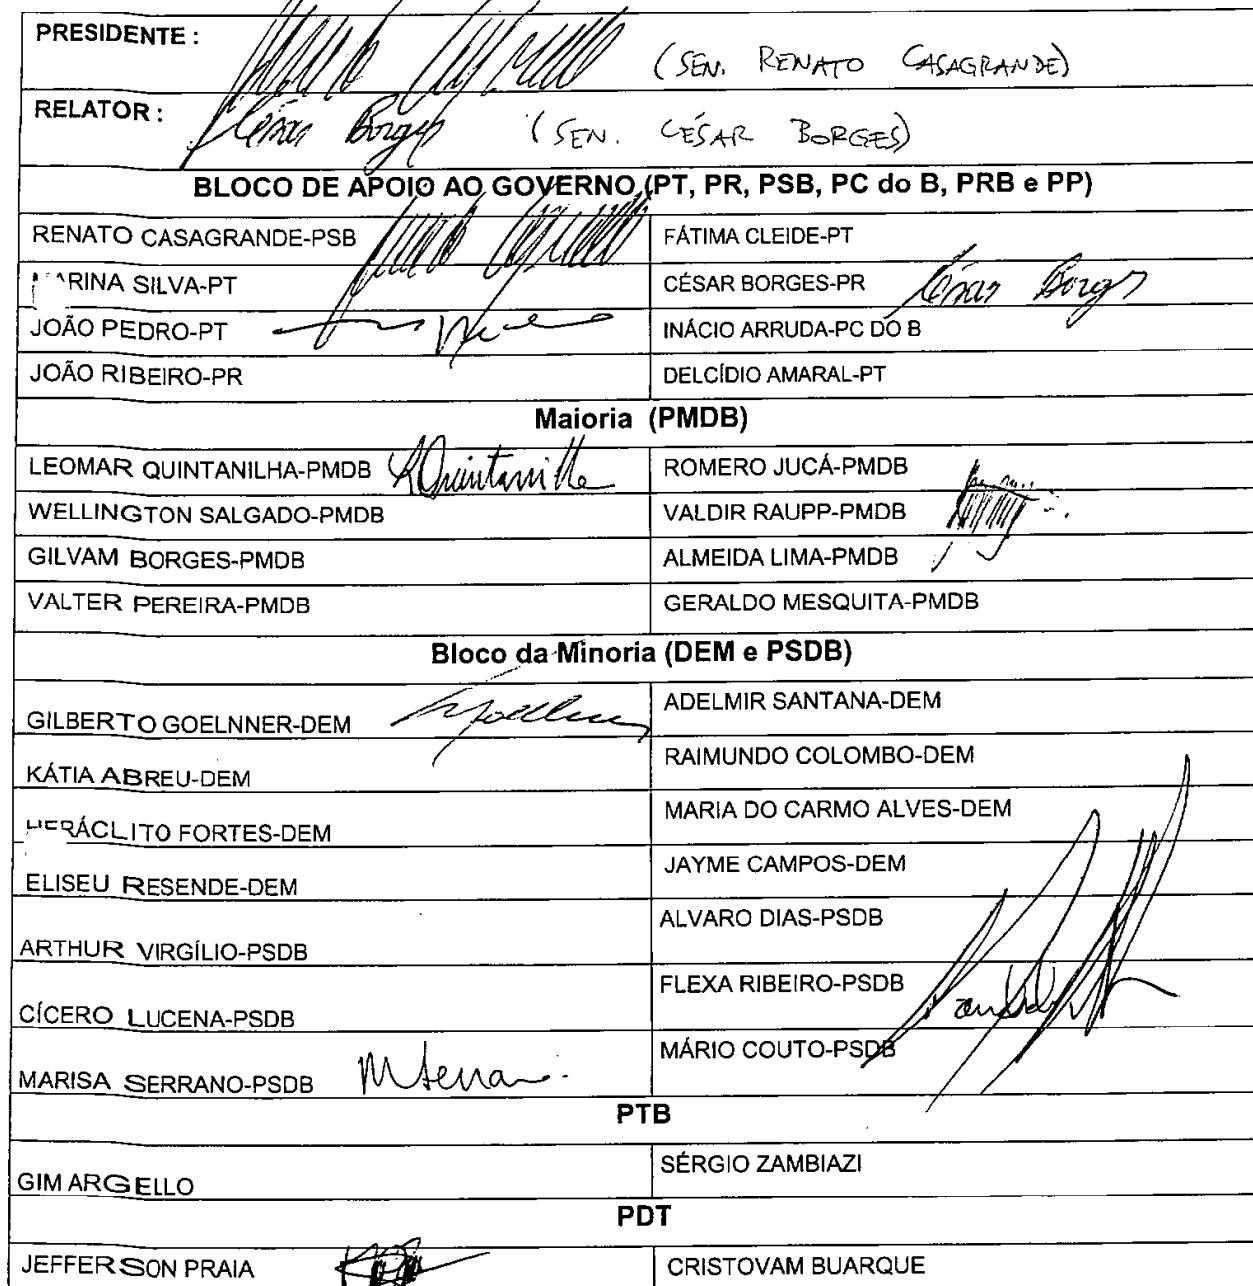 PRESIDENTE : (SEN. RENATO CASAGRANDE)
RELATOR : César Borges (SEN. CÉSAR BORGES)
BLOCO DE APOIO AO GOVERNO (PT, PR, PSB, PC do B, PRB e PP)
RENATO CASAGRANDE-PSB FÁTIMA CLEIDE-PT
ARINA SILVA-PT CÉSAR BORGES-PR César Borges
JOÃO PEDRO-PT INÁCIO ARRUDA-PC DO B
JOÃO RIBEIRO-PR DELCÍDIO AMARAL-PT
Maioria (PMDB)
LEOMAR QUINTANILHA-PMDB LQuintanilha ROMERO JUCÁ-PMDB
WELLINGTON SALGADO-PMDB VALDIR RAUPP-PMDB
GILVAM BORGES-PMDB ALMEIDA LIMA-PMDB
VALTER PEREIRA-PMDB GERALDO MESQUITA-PMDB
Bloco da Minoria (DEM e PSDB)
GILBERTO GOELNNER-DEM ADELMIR SANTANA-DEM
KÁTIA ABREU-DEM RAIMUNDO COLOMBO-DEM
HERÁCLITO FORTES-DEM MARIA DO CARMO ALVES-DEM
ELISEU RESENDE-DEM JAYME CAMPOS-DEM
ARTHUR VIRGÍLIO-PSDB ALVARO DIAS-PSDB
CÍCERO LUCENA-PSDB FLEXA RIBEIRO-PSDB
MARISA SERRANO-PSDB MÁRIO COUTO-PSDB
PTB
GIM ARGELLO SÉRGIO ZAMBIAZI
PDT
JEFFERSON PRAIA CRISTOVAM BUARQUE